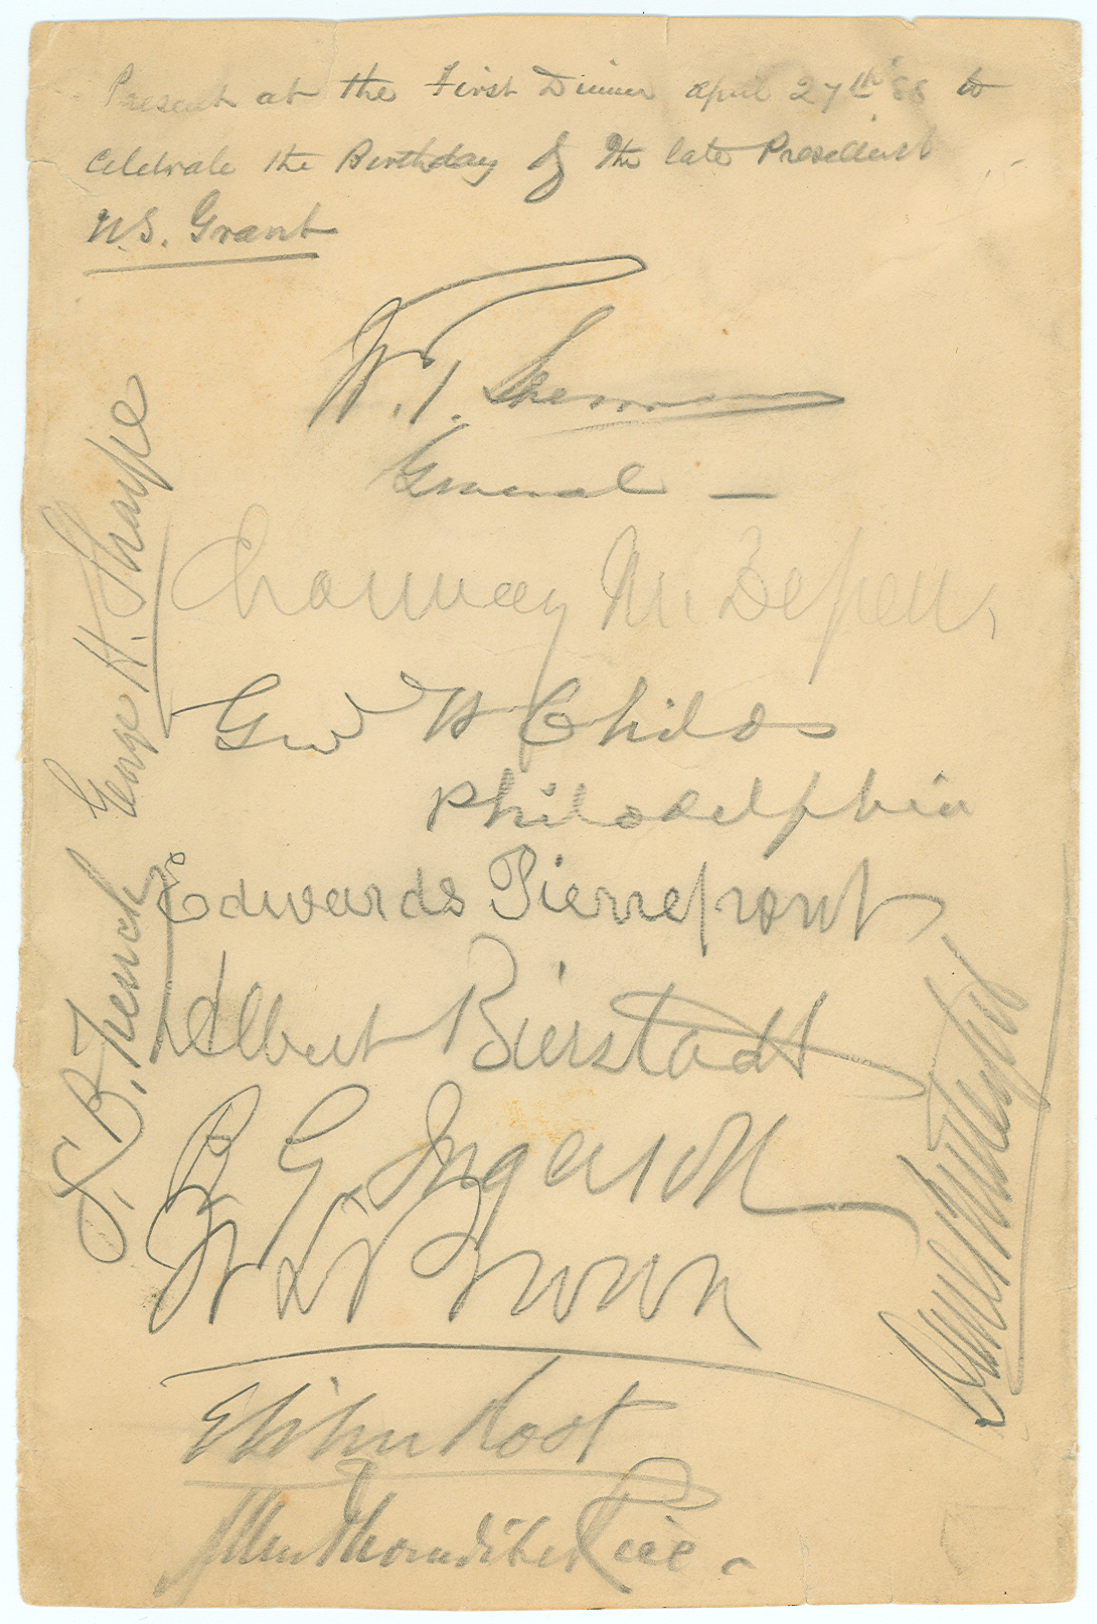 Present at the First Dinner April 27th 88 to
Celebrate the Birthday of the late President
U.S. Grant
W. T. Sherman
General —
Chauncey M. Depew.
Geo W Childs
Philadelphia
Edwards Pierrepont
Albert Bierstadt
R G Ingersoll
Elihu Root
Allen Thorndike Rice -
George H. Sharpe
S. B. French